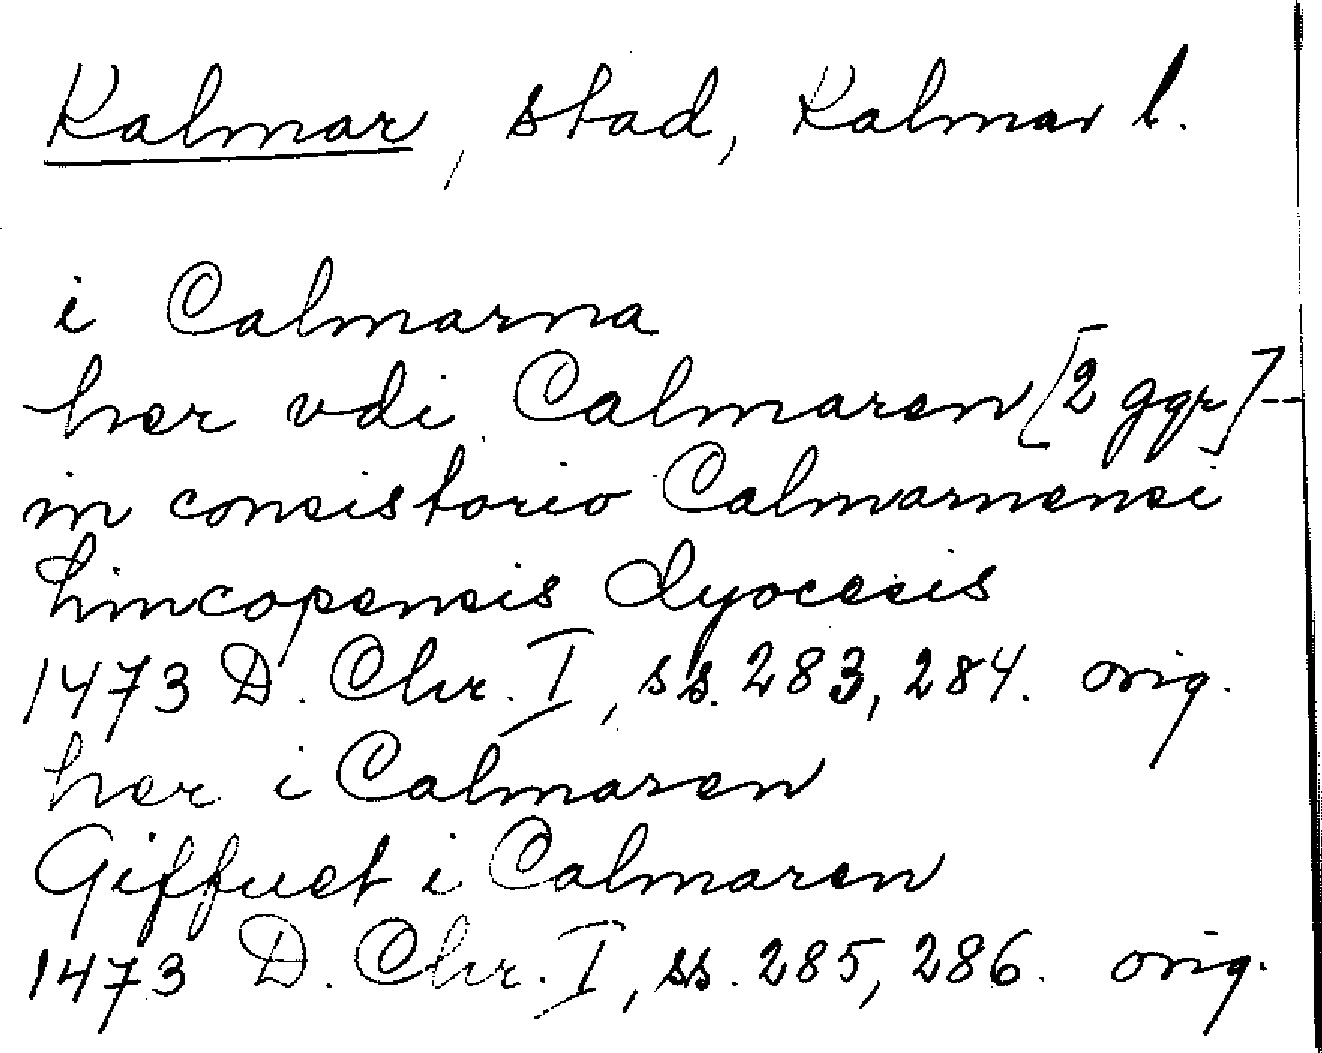 Kalmar, stad, Kalmar l.
i Calmarna
her vdi Calmaren [2 ggr] --
in consistorio Calmarnensi
Lincopensis dyocesis
1473 D. Chr. I, ss. 283, 284. orig.
her i Calmaren
Giffuet i Calmaren
1473 D. Chr. I, ss. 285, 286. orig.